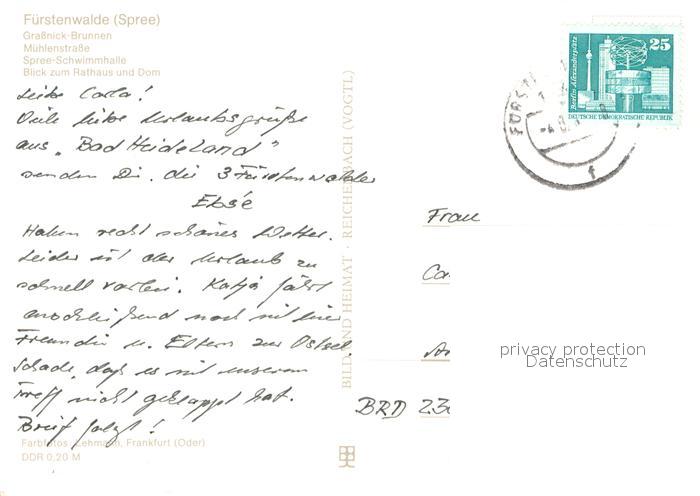 Fürstenwalde (Spree)
Graßnick-Brunnen
Mühlenstraße
Spree-Schwimmhalle
Blick zum Rathaus und Dom
Liebe Carla!
Viele liebe Urlaubsgrüße
aus „Bad Heideland"
senden Dir die 3 Fürstenwalder
Haben recht schönes Wetter.
Leider ist der Urlaub zu
schnell vorbei. Katja fährt
anschließend noch mit einer
Freundin u. Eltern zur Ostsee.
Schade, daß es mit unserem
Treff nicht geklappt hat.
Brief folgt!
Farbfotos: Lehmann, Frankfurt (Oder)
DDR 0,20 M
BILD UND HEIMAT · REICHENBACH (VOGTL)
25
Berlin, Alexanderplatz
DEUTSCHE DEMOKRATISCHE REPUBLIK
FÜRST
f
Frau
Ca
BRD 23
privacy protection
Datenschutz